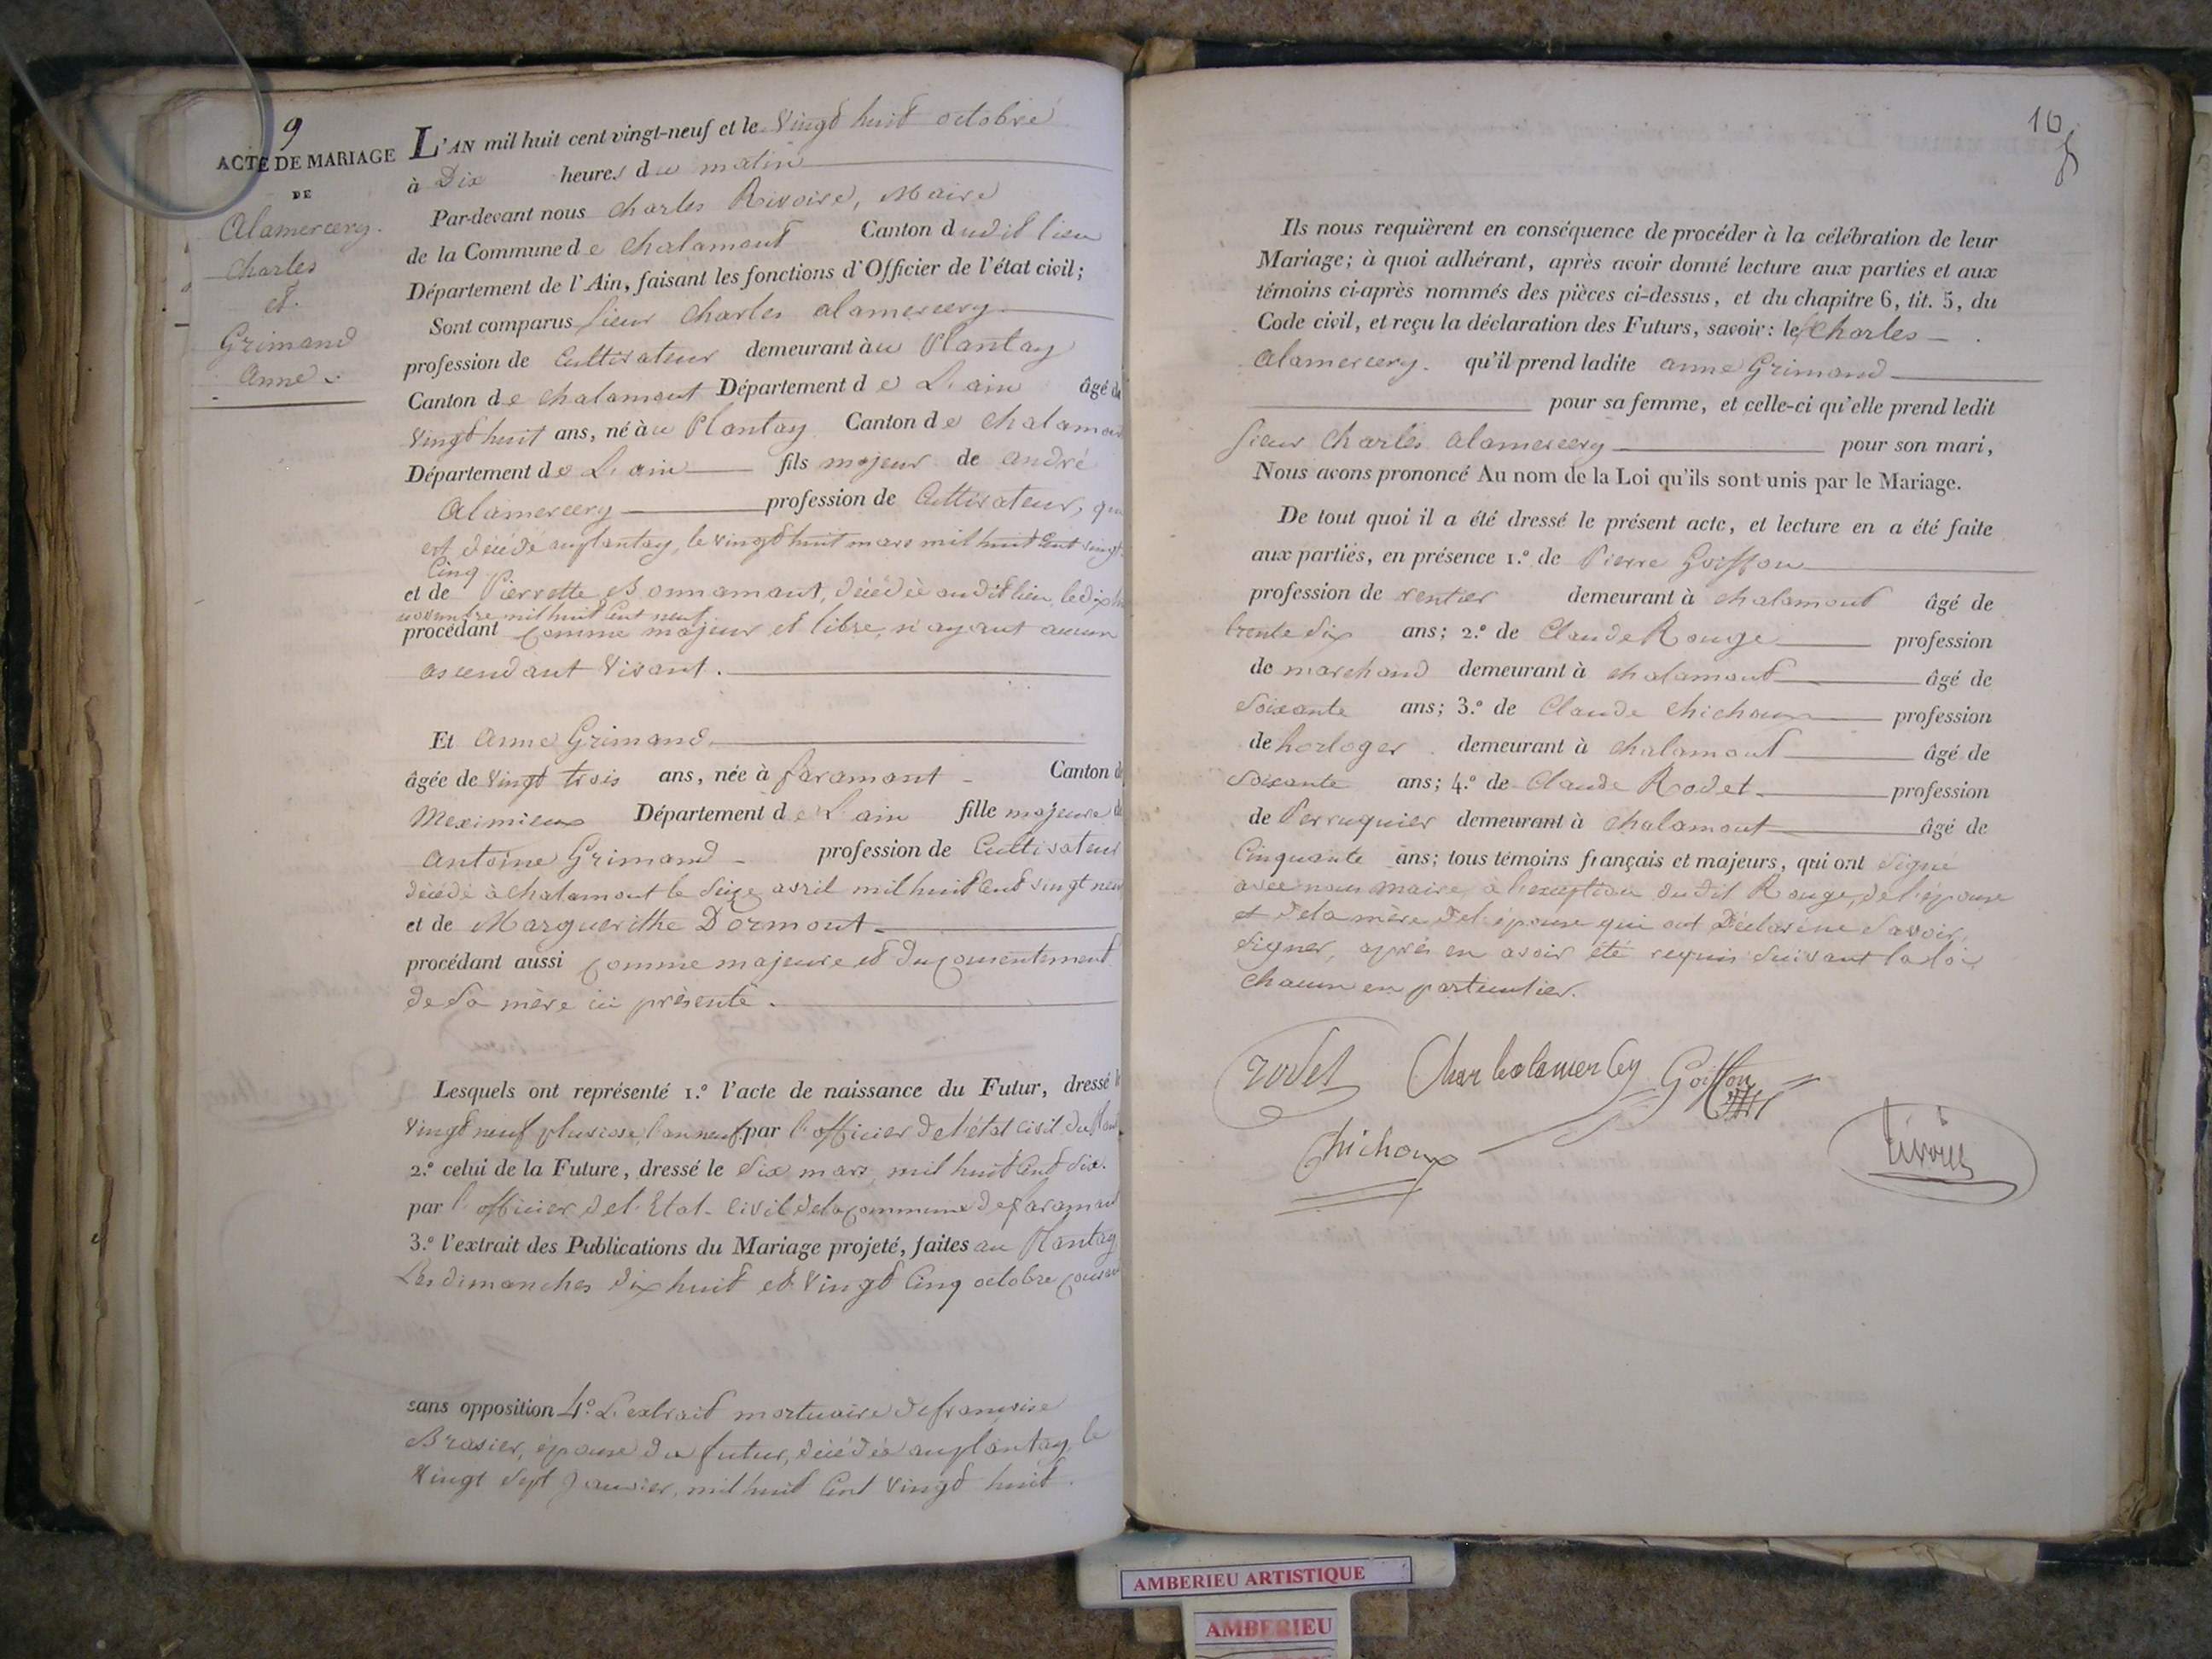 9
ACTE DE MARIAGE
DE
Alamercery.
Charles
et.
Grimand
Anne.
L'AN mil huit cent vingt-neuf et le Vingt huit octobre
à Dix heures du matin
Par-devant nous Charles Rivoire, Maire
de la Commune de Chalamont Canton dudit lieu
Département de l'Ain, faisant les fonctions d'Officier de l'état civil;
Sont comparus Sieur Charles alamercery
profession de Cultivateur demeurant àu Plantay
Canton de Chalamont Département de L'ain âgé de
Vingt huit ans, né àu Plantay Canton de Chalamont
Département de L'ain fils majeur de andré
Alamercery profession de Cultivateur, qui
est décédé auplantay, le vingt huit mars mil huit Cent vingt
Cinq
et de Pierrette Bonnamant, décédée audit lieu, le dix
novembre mil huit Cent neuf.
procédant comme majeur et libre, n'ayant aucun
ascendant Vivant.
Et Anne Grimand
âgée de Vingt trois ans, née à faramant Canton de
Meximieux Département de L'ain fille majeure de
Antoine Grimand profession de Cultivateur
décédé à Chalamont le Seize avril mil huit Cent vingt neuf
et de Marguerithe Dormont
procédant aussi comme majeure et du consentement
de Sa mère ici présente.
Lesquels ont représenté 1.º l'acte de naissance du Futur, dressé le
Vingt neuf pluviose, l'an neuf par l'officier de l'état civil du Plant
2.º celui de la Future, dressé le Six mars mil huit Cent Six.
par l'officier del'Etat-Civil delacommune defaramant
3.º l'extrait des Publications du Mariage projeté, faites au Plantay
Les dimanches dix huit et Vingt Cinq octobre courant
sans opposition 4º. L'extrait mortuaire defrancoise
Brasier, épouse du futur, décédée auplantay le
Vingt Sept Janvier, mil huit Cent Vingt huit.
10
Ils nous requièrent en conséquence de procéder à la célébration de leur
Mariage; à quoi adhérant, après avoir donné lecture aux parties et aux
témoins ci-après nommés des pièces ci-dessus, et du chapitre 6, tit. 5, du
Code civil, et reçu la déclaration des Futurs, savoir: le Charles
Alamercery. qu'il prend ladite anne Grimand
pour sa femme, et celle-ci qu'elle prend ledit
Sieur Charles Alamercery pour son mari,
Nous avons prononcé Au nom de la Loi qu'ils sont unis par le Mariage.
De tout quoi il a été dressé le présent acte, et lecture en a été faite
aux parties, en présence 1.º de Pierre Goiffon
profession de rentier demeurant à Chalamont âgé de
trente Six ans; 2.º de Claude Rouge profession
de marchand demeurant à Chalamont âgé de
Soixante ans; 3.º de Claude Chichoux profession
de horloger demeurant à Chalamont âgé de
Soixante ans; 4.º de Claude Rodet profession
de Perruquier demeurant à Chalamont âgé de
Cinquante ans; tous témoins français et majeurs, qui ont Signé
avec nous maire, à l'exception du dit Rouge, de l'épouse
et dela mère del'épouse qui ont Déclaré ne Savoir
Signer, après en avoir été requis Suivant la loi
Chacun en particulier.
rodet Charles alamercery Goiffon
Chichoux
Rivoire
AMBERIEU ARTISTIQUE
AMBERIEU